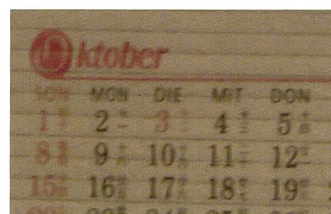 Oktober
SON MON DIE MIT DON
1 2 3 4 5
8 9 10 11 12
15 16 17 18 19